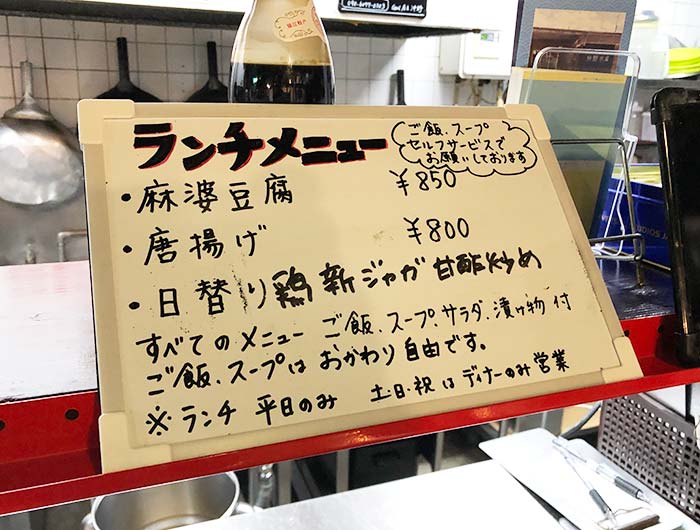 ランチメニュー
ご飯、スープ
セルフサービスで
お願いしております
・麻婆豆腐 ¥850
・唐揚げ ¥800
・日替り 鶏 新ジャガ 甘酢炒め
すべてのメニュー ご飯、スープ、サラダ、漬け物 付
ご飯、スープは おかわり 自由です。
※ ランチ 平日のみ 土・日・祝 は ディナーのみ 営業